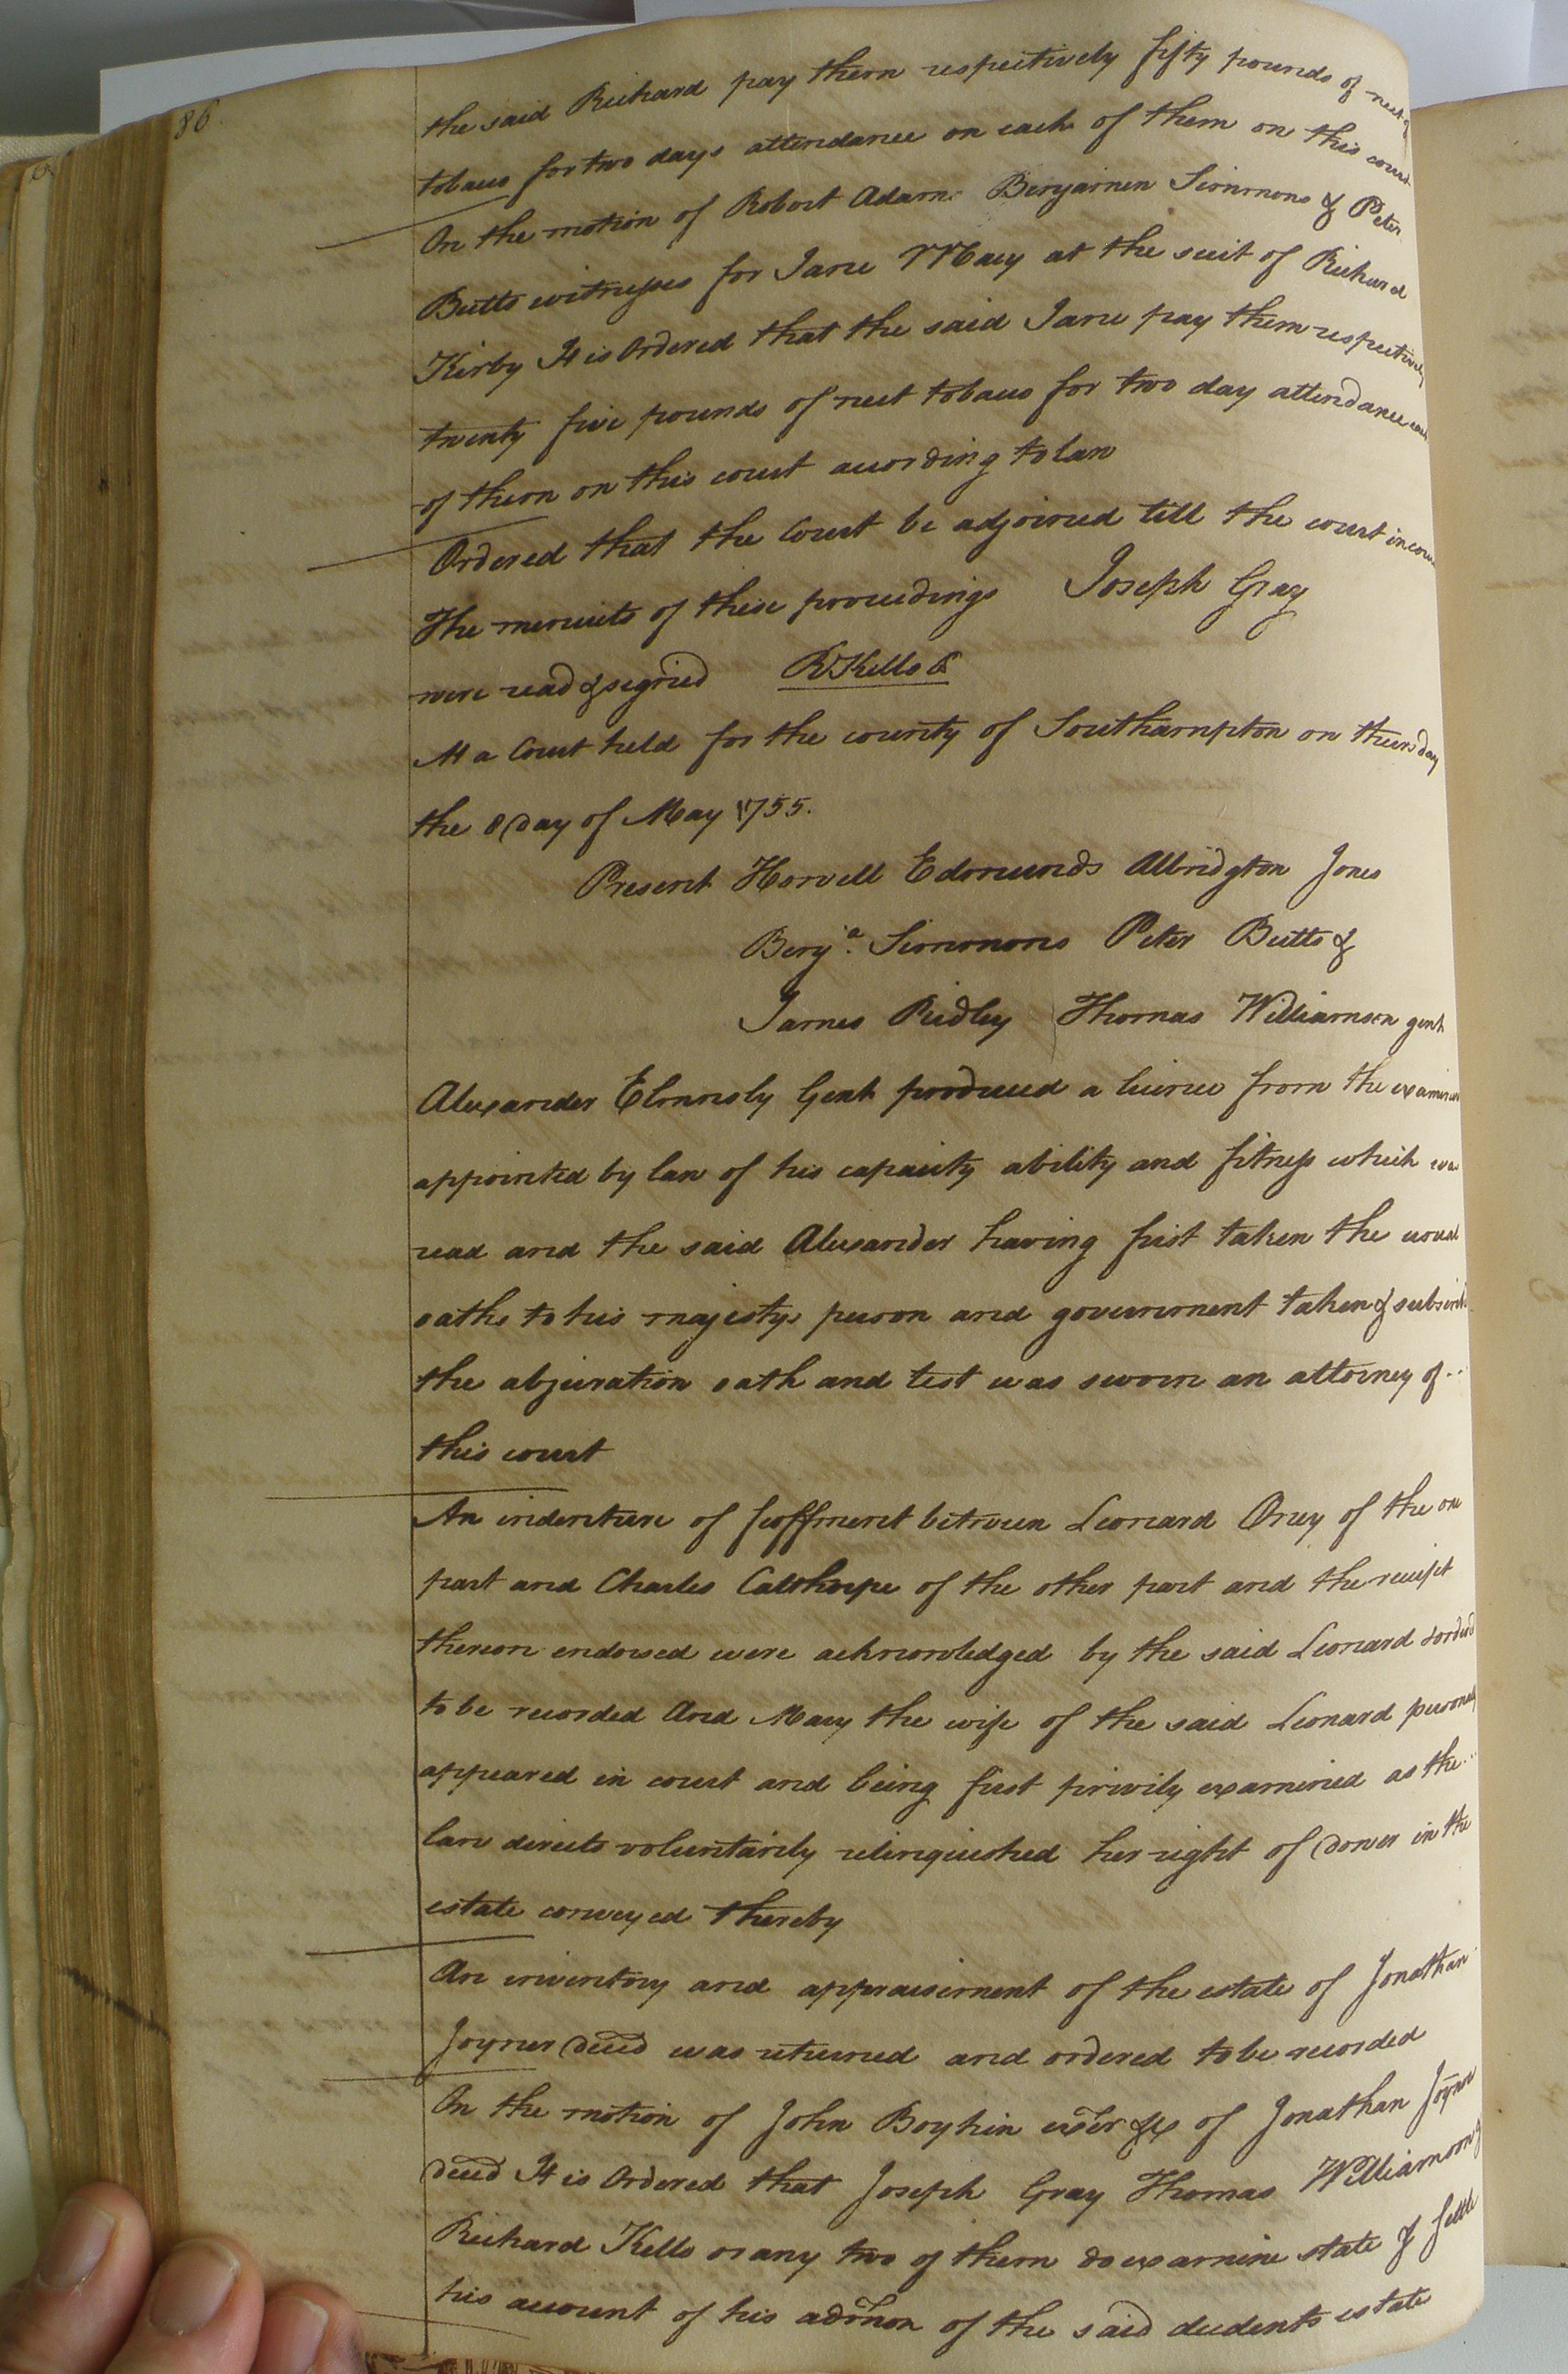 86.
the said Richard pay them respectively fifty pounds of neet
tobacco for two days attendance on each of them on this court
On the motion of Robert Adams Benjamin Simmons & Peter
Butts witnesses for Jane Mary at the suit of Richard
Kirby It is Ordered that the said Jane pay them respectively
twenty five pounds of neet tobacco for two day attendance each
of them on this court according to law
Ordered that the Court be adjoined till the court in course
The menuits of these proceedings Joseph Gray
were read & segned R Kello C
At a Court held for the county of Southampton on thursday
the 8 Day of May 1755.
Present Howell Edmunds Albridgton Jones
Benja. Simmons Peter Butts &
James Ridley Thomas Williamson gent
Alexander Elmnsly Gent produced a licence from the examiners
appointed by law of his capacity ability and fitness which was
read and the said Alexander having first taken the usual
oaths to his majestys person and government taken & subscribd
the abjuration oath and test was sworn an attorney of
this court
An indenture of feoffment between Leonard Oney of the one
part and Charles Calthorpe of the other part and the receipt
thereon endorsed were acknowledged by the said Leonard & orderd
to be recorded And Mary the wife of the said Leonard personaly
appeared in court and being first privily examined as the
law directs voluntarily relinquished her right of Dower in the
estate conveyed thereby
An inventory and appraisement of the estate of Jonathan
Joyner decd was returned and ordered to be recorded
On the motion of John Boykin exer &c of Jonathan Joyner
decd It is Ordered that Joseph Gray Thomas Williamson &
Richard Kello or any two of them do examine state & settle
his account of his admon of the said decedents estate